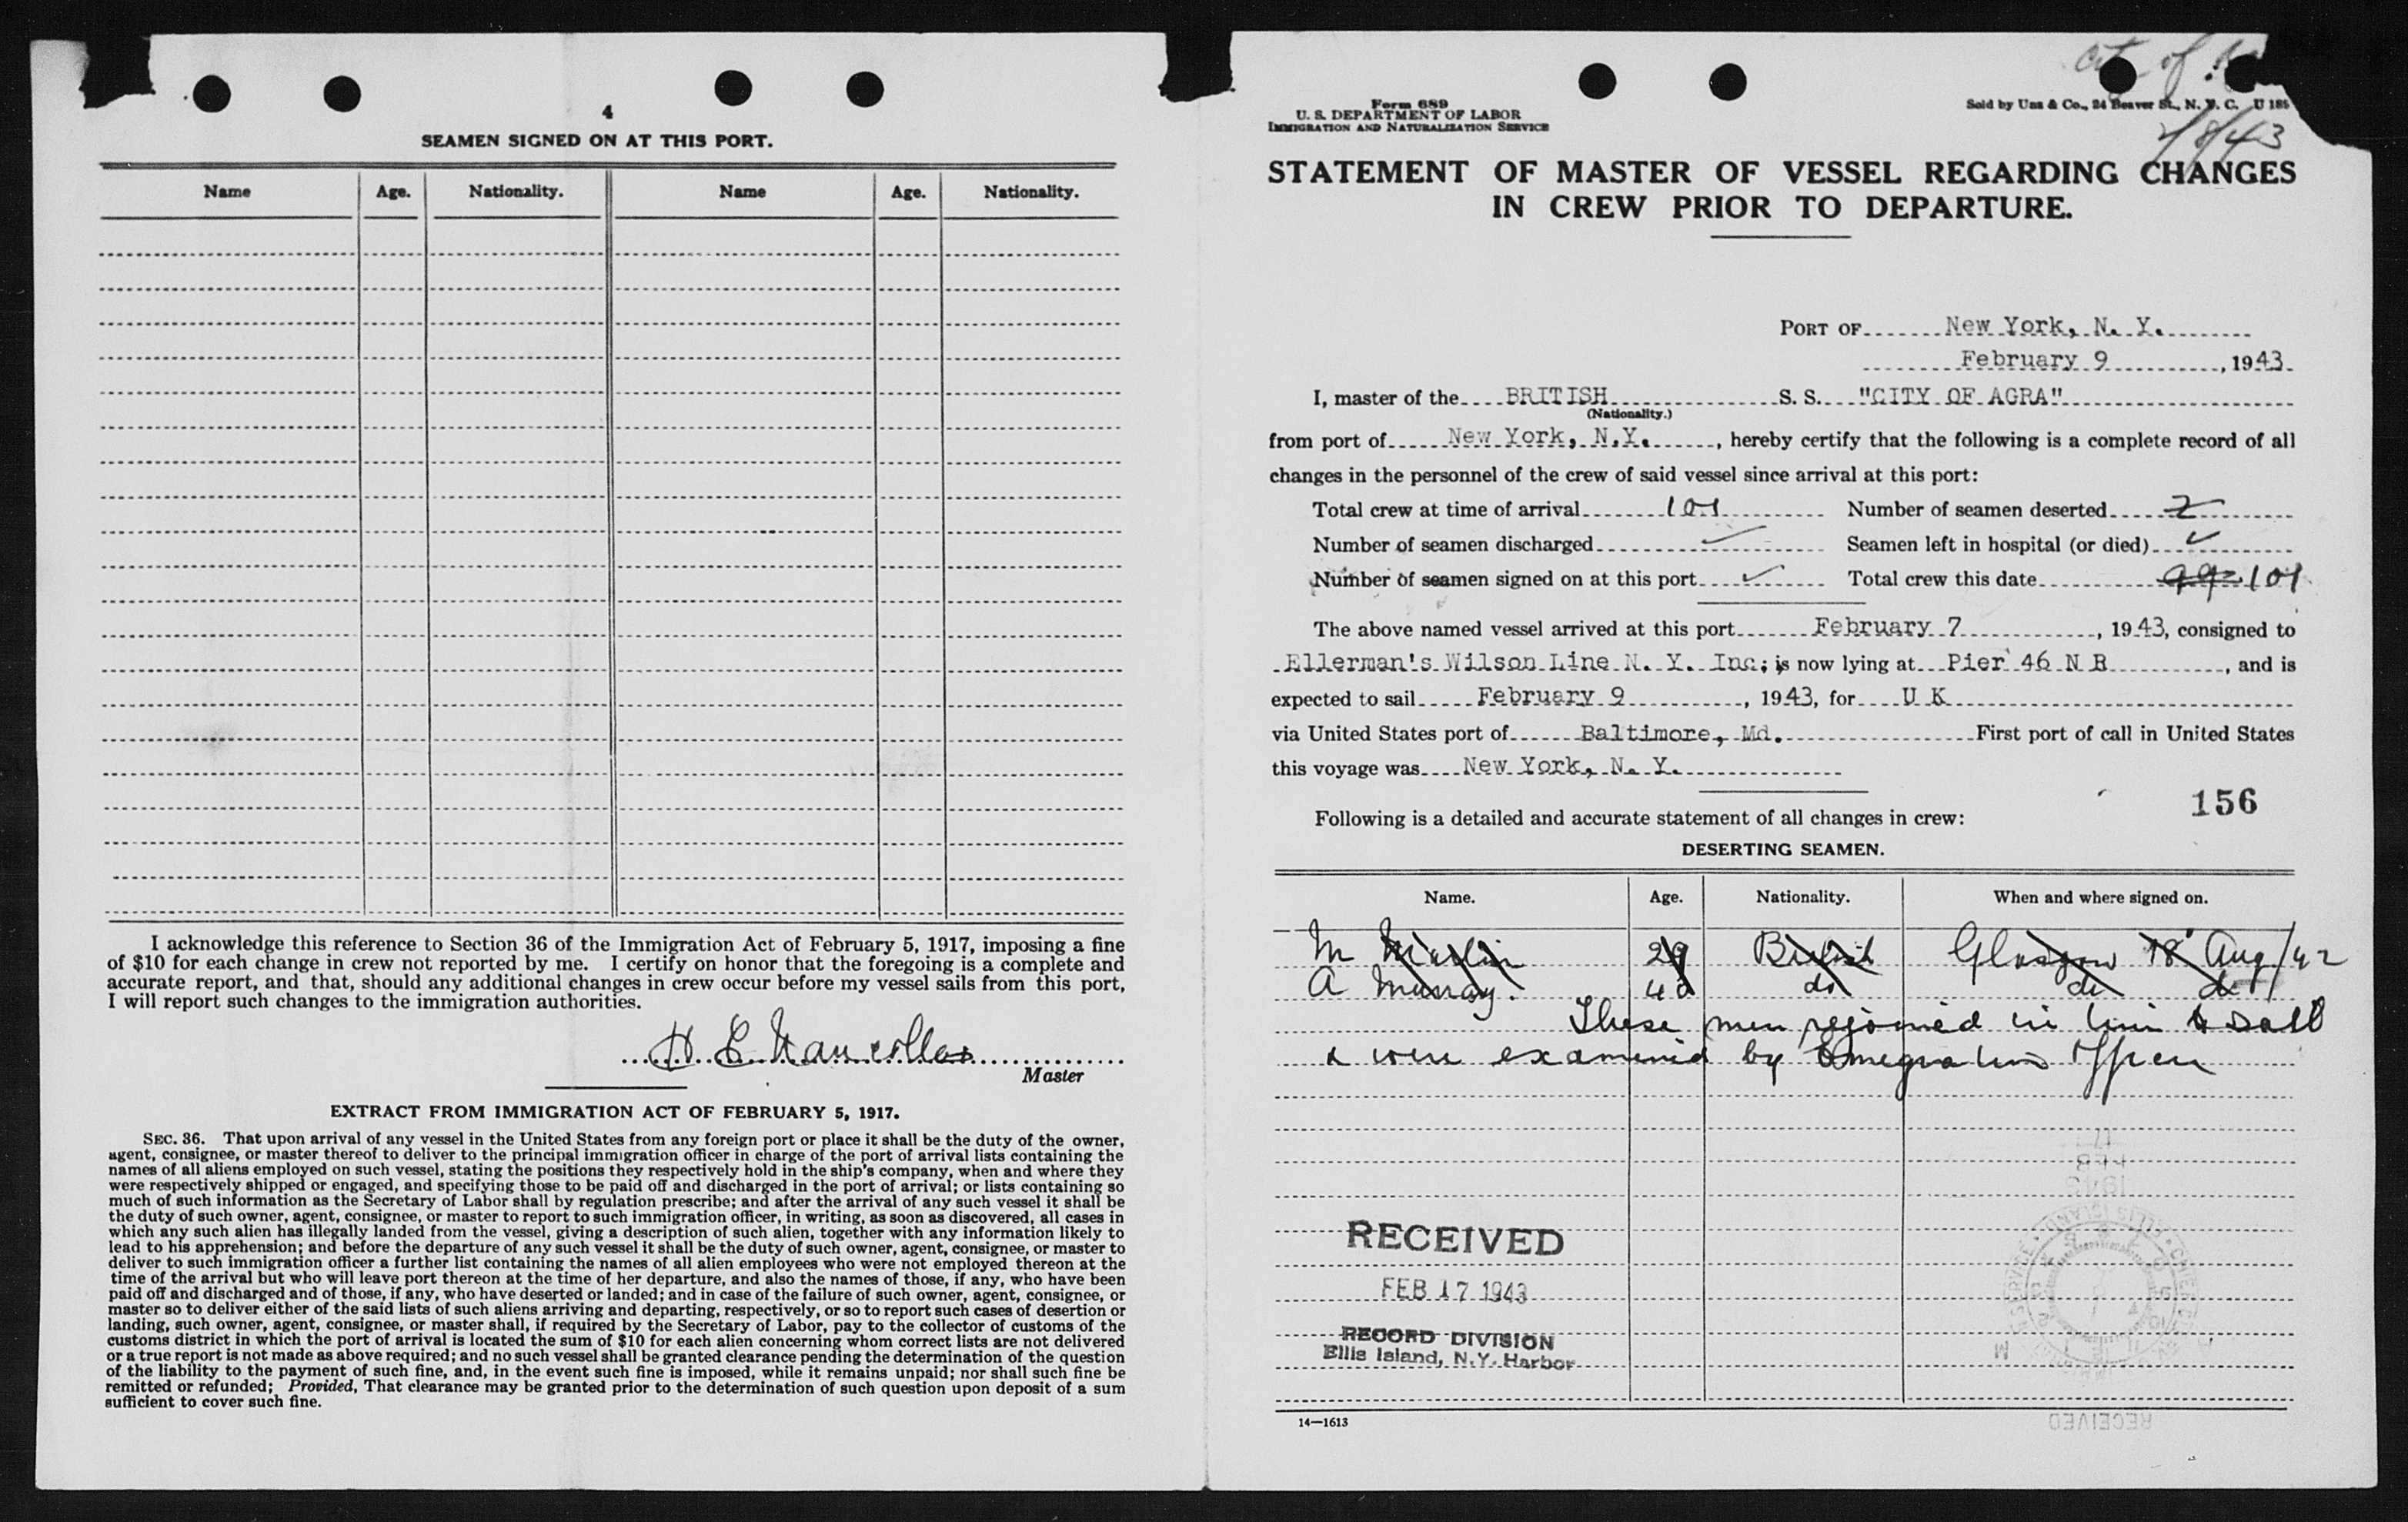 4
SEAMEN SIGNED ON AT THIS PORT.
Name Age. Nationality. Name Age. Nationality.
I acknowledge this reference to Section 36 of the Immigration Act of February 5, 1917, imposing a fine
of $10 for each change in crew not reported by me. I certify on honor that the foregoing is a complete and
accurate report, and that, should any additional changes in crew occur before my vessel sails from this port,
I will report such changes to the immigration authorities.
H. E.
Master
EXTRACT FROM IMMIGRATION ACT OF FEBRUARY 5, 1917.
SEC. 36. That upon arrival of any vessel in the United States from any foreign port or place it shall be the duty of the owner,
agent, consignee, or master thereof to deliver to the principal immigration officer in charge of the port of arrival lists containing the
names of all aliens employed on such vessel, stating the positions they respectively hold in the ship's company, when and where they
were respectively shipped or engaged, and specifying those to be paid off and discharged in the port of arrival; or lists containing so
much of such information as the Secretary of Labor shall by regulation prescribe; and after the arrival of any such vessel it shall be
the duty of such owner, agent, consignee, or master to report to such immigration officer, in writing, as soon as discovered, all cases in
which any such alien has illegally landed from the vessel, giving a description of such alien, together with any information likely to
lead to his apprehension; and before the departure of any such vessel it shall be the duty of such owner, agent, consignee, or master to
deliver to such immigration officer a further list containing the names of all alien employees who were not employed thereon at the
time of the arrival but who will leave port thereon at the time of her departure, and also the names of those, if any, who have been
paid off and discharged and of those, if any, who have deserted or landed; and in case of the failure of such owner, agent, consignee, or
master so to deliver either of the said lists of such aliens arriving and departing, respectively, or so to report such cases of desertion or
landing, such owner, agent, consignee, or master shall, if required by the Secretary of Labor, pay to the collector of customs of the
customs district in which the port of arrival is located the sum of $10 for each alien concerning whom correct lists are not delivered
or a true report is not made as above required; and no such vessel shall be granted clearance pending the determination of the question
of the liability to the payment of such fine, and, in the event such fine is imposed, while it remains unpaid; nor shall such fine be
remitted or refunded; Provided, That clearance may be granted prior to the determination of such question upon deposit of a sum
sufficient to cover such fine.
City of
Form 689
U. S. DEPARTMENT OF LABOR
IMMIGRATION AND NATURALIZATION SERVICE
Sold by Unz & Co., 24 Beaver St., N. Y. C. U 185
2/8/43
STATEMENT OF MASTER OF VESSEL REGARDING CHANGES
IN CREW PRIOR TO DEPARTURE.
PORT OF New York, N. Y.
February 9, 1943
I, master of the BRITISH S. S. "CITY OF AGRA"
(Nationality.)
from port of New York, N.Y., hereby certify that the following is a complete record of all
changes in the personnel of the crew of said vessel since arrival at this port:
Total crew at time of arrival 101 Number of seamen deserted 2
Number of seamen discharged ✓ Seamen left in hospital (or died) ✓
Number of seamen signed on at this port ✓ Total crew this date 99 101
The above named vessel arrived at this port February 7, 1943, consigned to
Ellerman's Wilson Line N. Y. Inc; is now lying at Pier 46 N R, and is
expected to sail February 9, 1943, for U K
via United States port of Baltimore, Md. First port of call in United States
this voyage was New York, N. Y.
156
Following is a detailed and accurate statement of all changes in crew:
DESERTING SEAMEN.
Name. Age. Nationality. When and where signed on.
M 29 British Glasgow 18 Aug/42
A Murray. 40 do do do
These men rejoined in time to sail
& were examined by Immigration Officer
RECEIVED
FEB 17 1943
RECORD DIVISION
Ellis Island, N.Y. Harbor
14—1613
RECEIVED